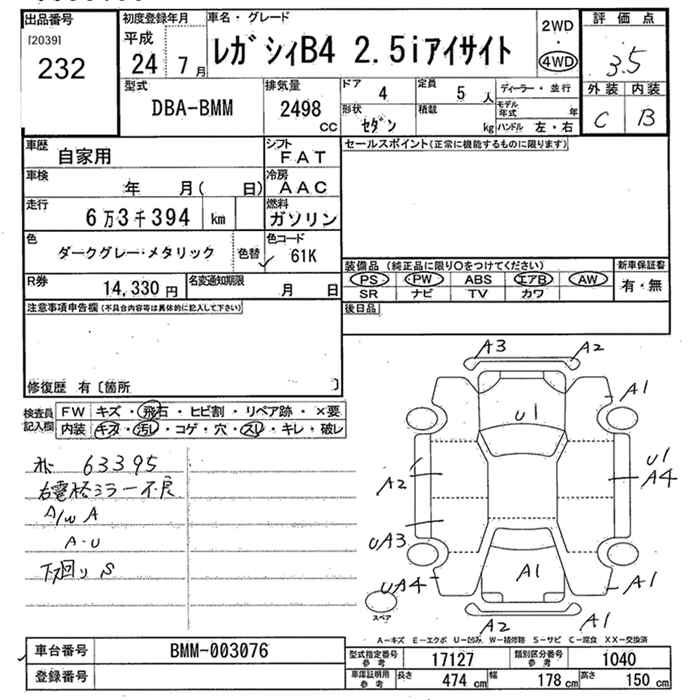 出品番号
[2039]
232
初度登録年月
平成
24 7月
車名・グレード
レガシィB4 2.5iアイサイト
2WD
・
4WD
評価点
3.5
外装 内装
C B
型式
DBA-BMM
排気量
2498
CC
ドア 4
定員 5 人
形状 セダン
積載 kg
ディーラー・並行
モデル年式 年
ハンドル 左・右
車歴
自家用
シフト
FAT
セールスポイント(正常に機能するものに限ります)
車検
年 月( 日)
冷房
AAC
走行
6万3千394 km
燃料
ガソリン
色
ダークグレー・メタリック
色替
色コード
61K
R券
14,330 円
名変通知期限
月 日
装備品 (純正品に限り○をつけてください)
新車保証書
PS PW ABS エアB AW
有・無
SR ナビ TV カワ
後日品
注意事項申告欄(不具合内容等は具体的に記入して下さい)
修復歴 有〔箇所 〕
検査員
記入欄
FW キズ・飛石・ヒビ割・リペア跡・×要
内装 キズ・汚レ・コゲ・穴・スレ・キレ・破レ
63395
右電格ミラー不良
A/W A
A・U
下廻り S
A3 A2
A1
U1
A2
U1
A4
UA3
UA4
A1
A1
スペア
A2 A1
A-キズ E-エクボ U-凹み W-補修跡 S-サビ C-腐食 XX-交換済
車台番号
BMM-003076
登録番号
型式指定番号
参考
17127
類別区分番号
参考
1040
車庫証明用
参考
長さ 474 cm
幅 178 cm
高さ 150 cm